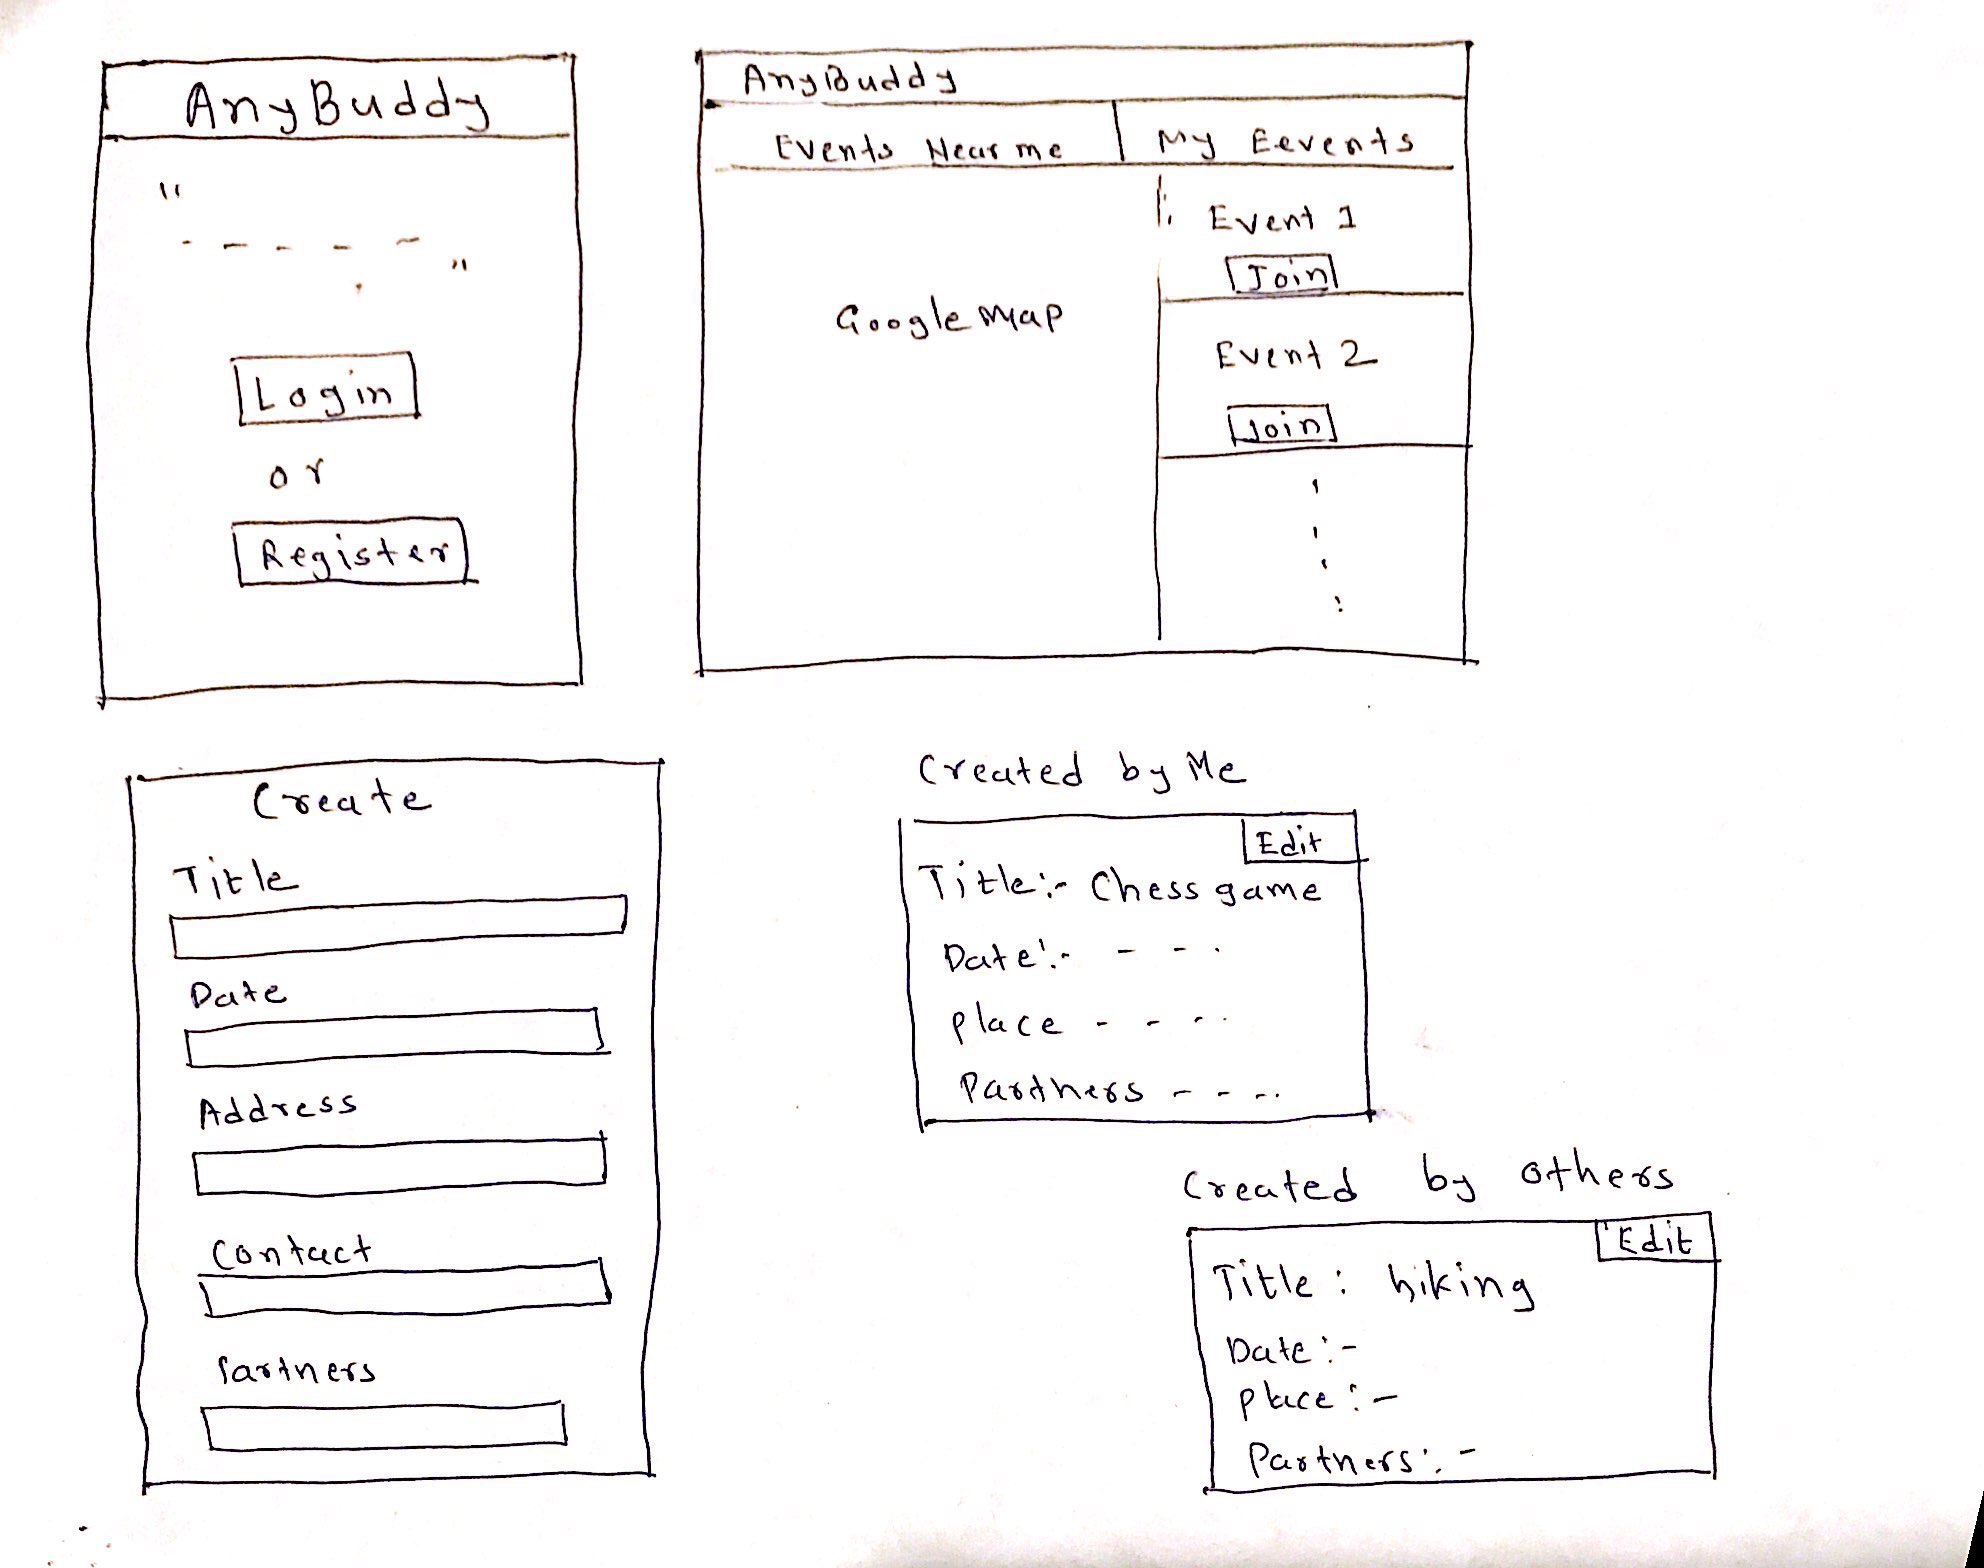 AnyBuddy
"
- - - - -
"
Login
or
Register
AnyBuddy
Events Near me
My Eevents
Event 1
Join
Google Map
Event 2
Join
Create
Title
Date
Address
Contact
Partners
Created by Me
Edit
Title:- Chess game
Date:- - - -
place - - - -
Partners - - - -
Created by others
Edit
Title : hiking
Date :-
place :-
Partners :-